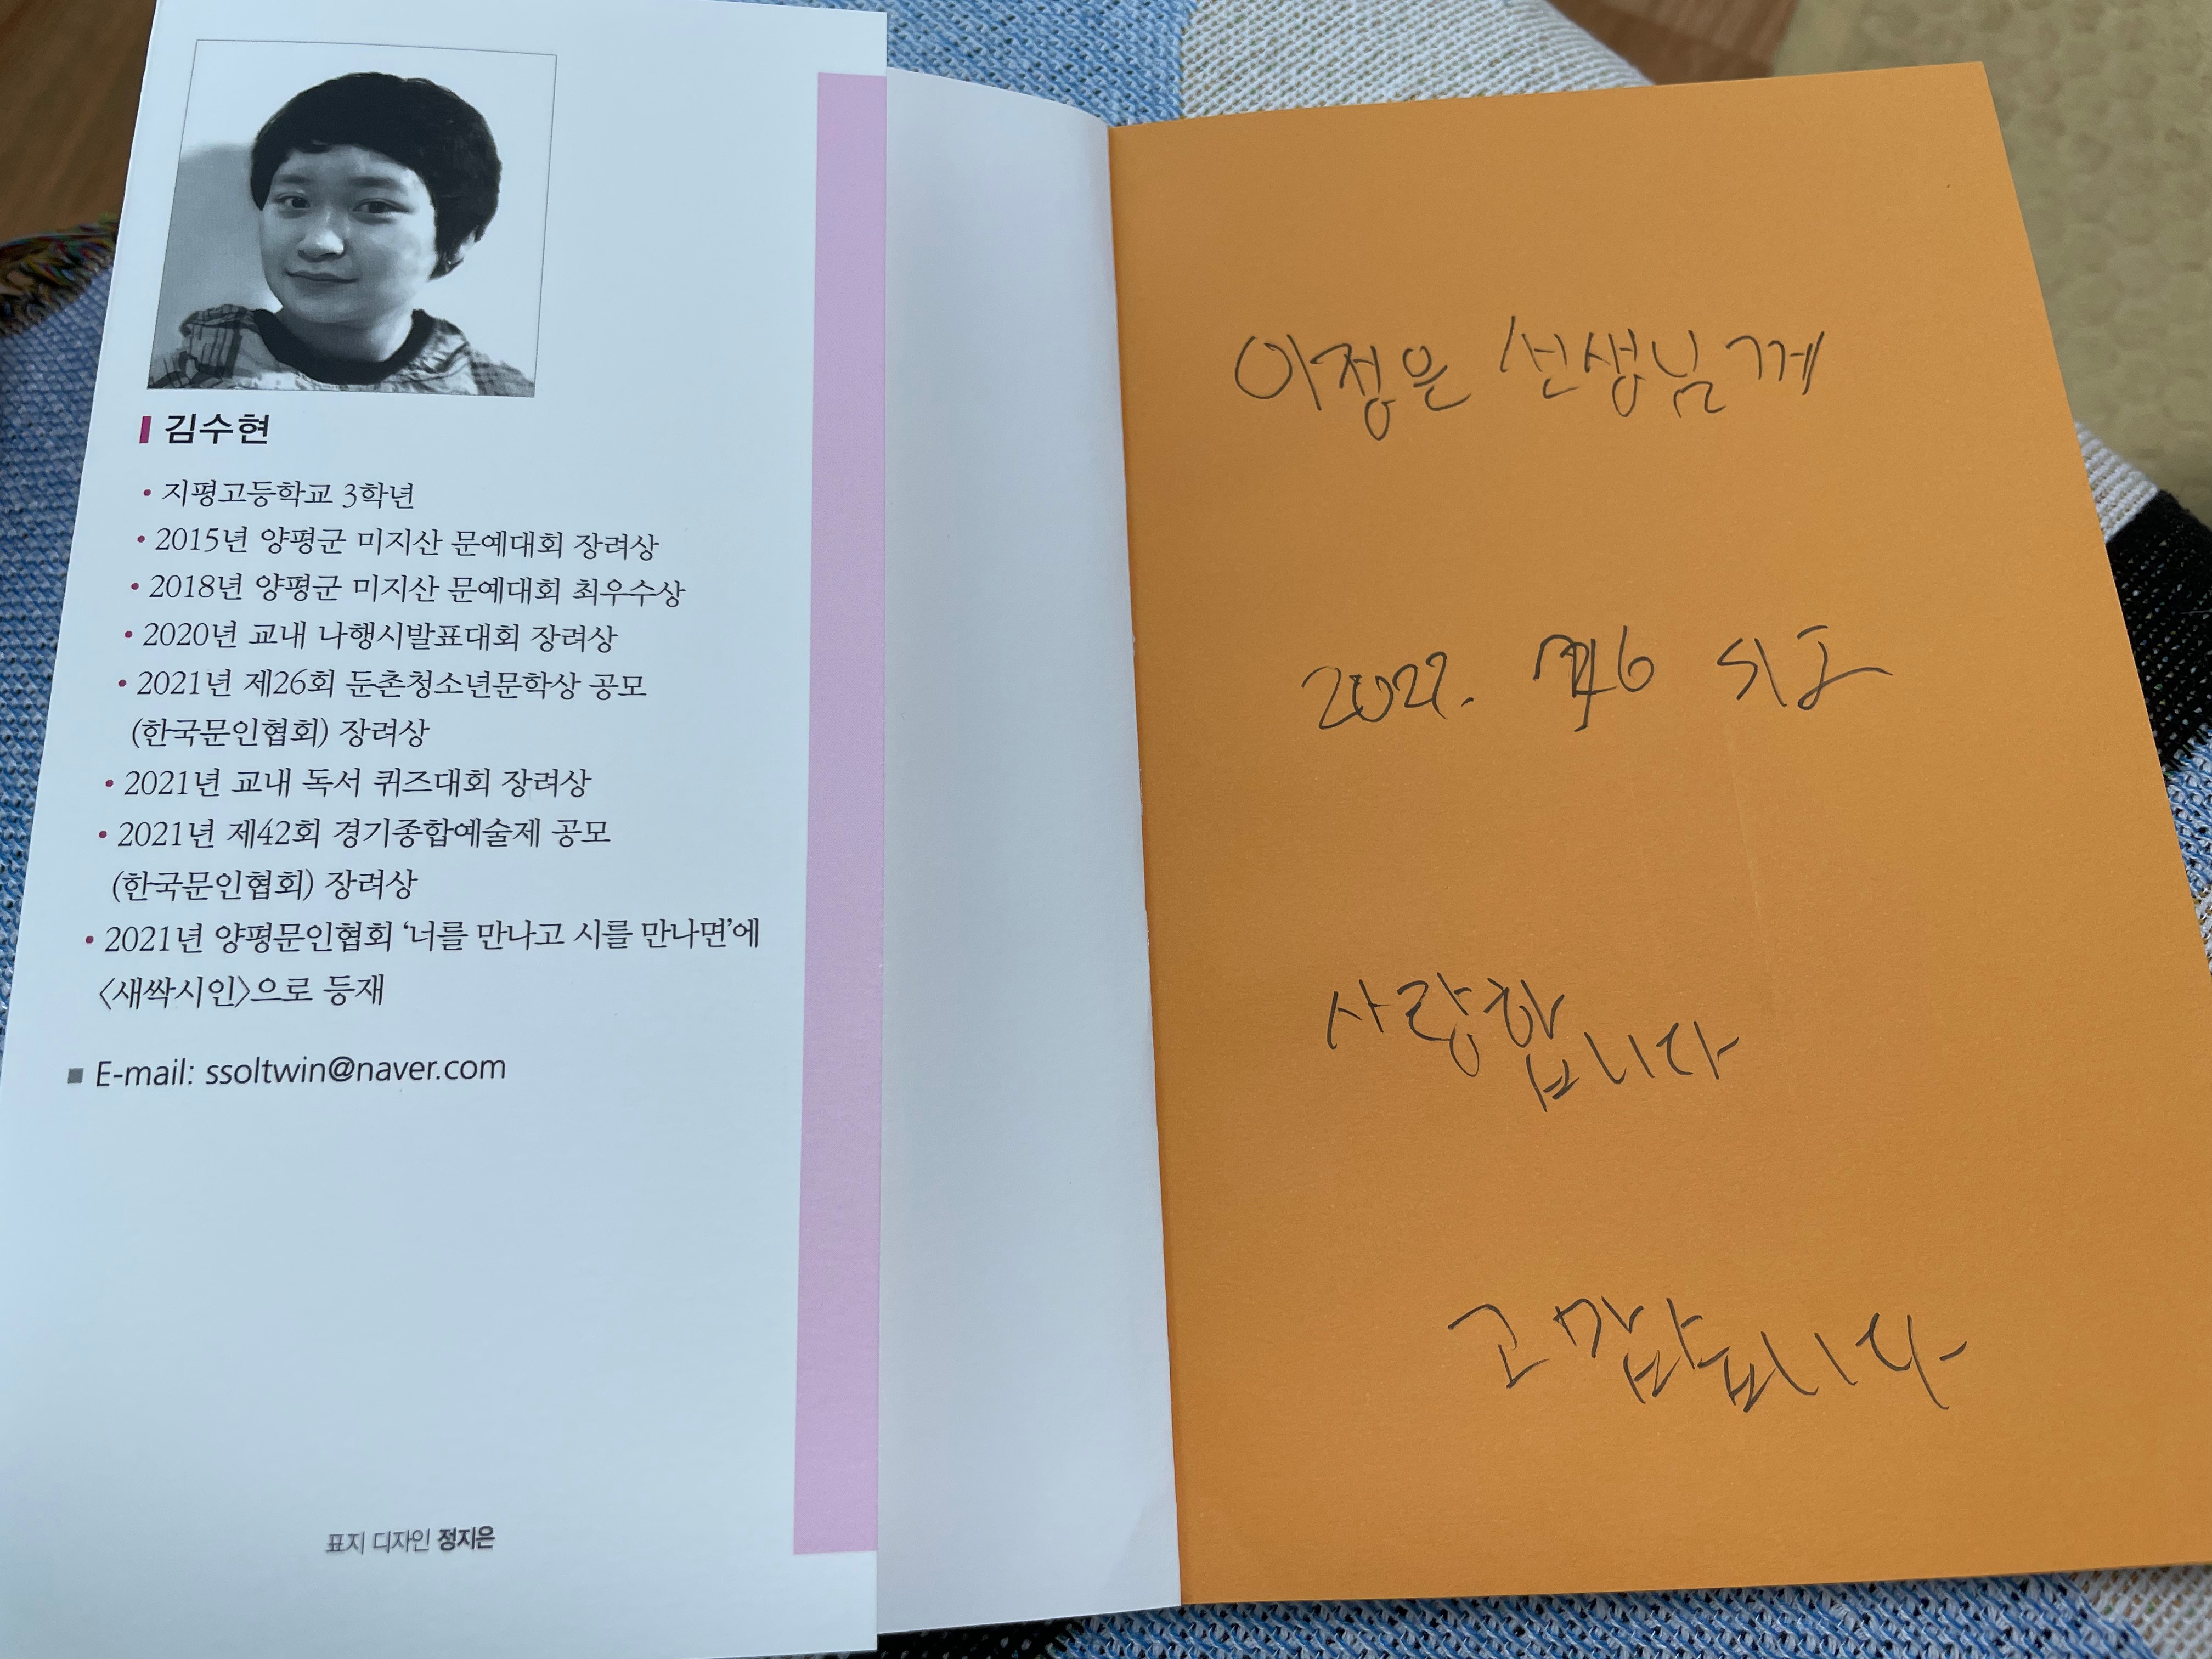 김수현
• 지평고등학교 3학년
• 2015년 양평군 미지산 문예대회 장려상
• 2018년 양평군 미지산 문예대회 최우수상
• 2020년 교내 나행시발표대회 장려상
• 2021년 제26회 둔촌청소년문학상 공모
(한국문인협회) 장려상
• 2021년 교내 독서 퀴즈대회 장려상
• 2021년 제42회 경기종합예술제 공모
(한국문인협회) 장려상
• 2021년 양평문인협회 ‘너를 만나고 시를 만나면’에
〈새싹시인〉으로 등재
■ E-mail: ssoltwin@naver.com
표지 디자인 정지은
이정은 선생님께
2022.
사랑합니다
고맙습니다